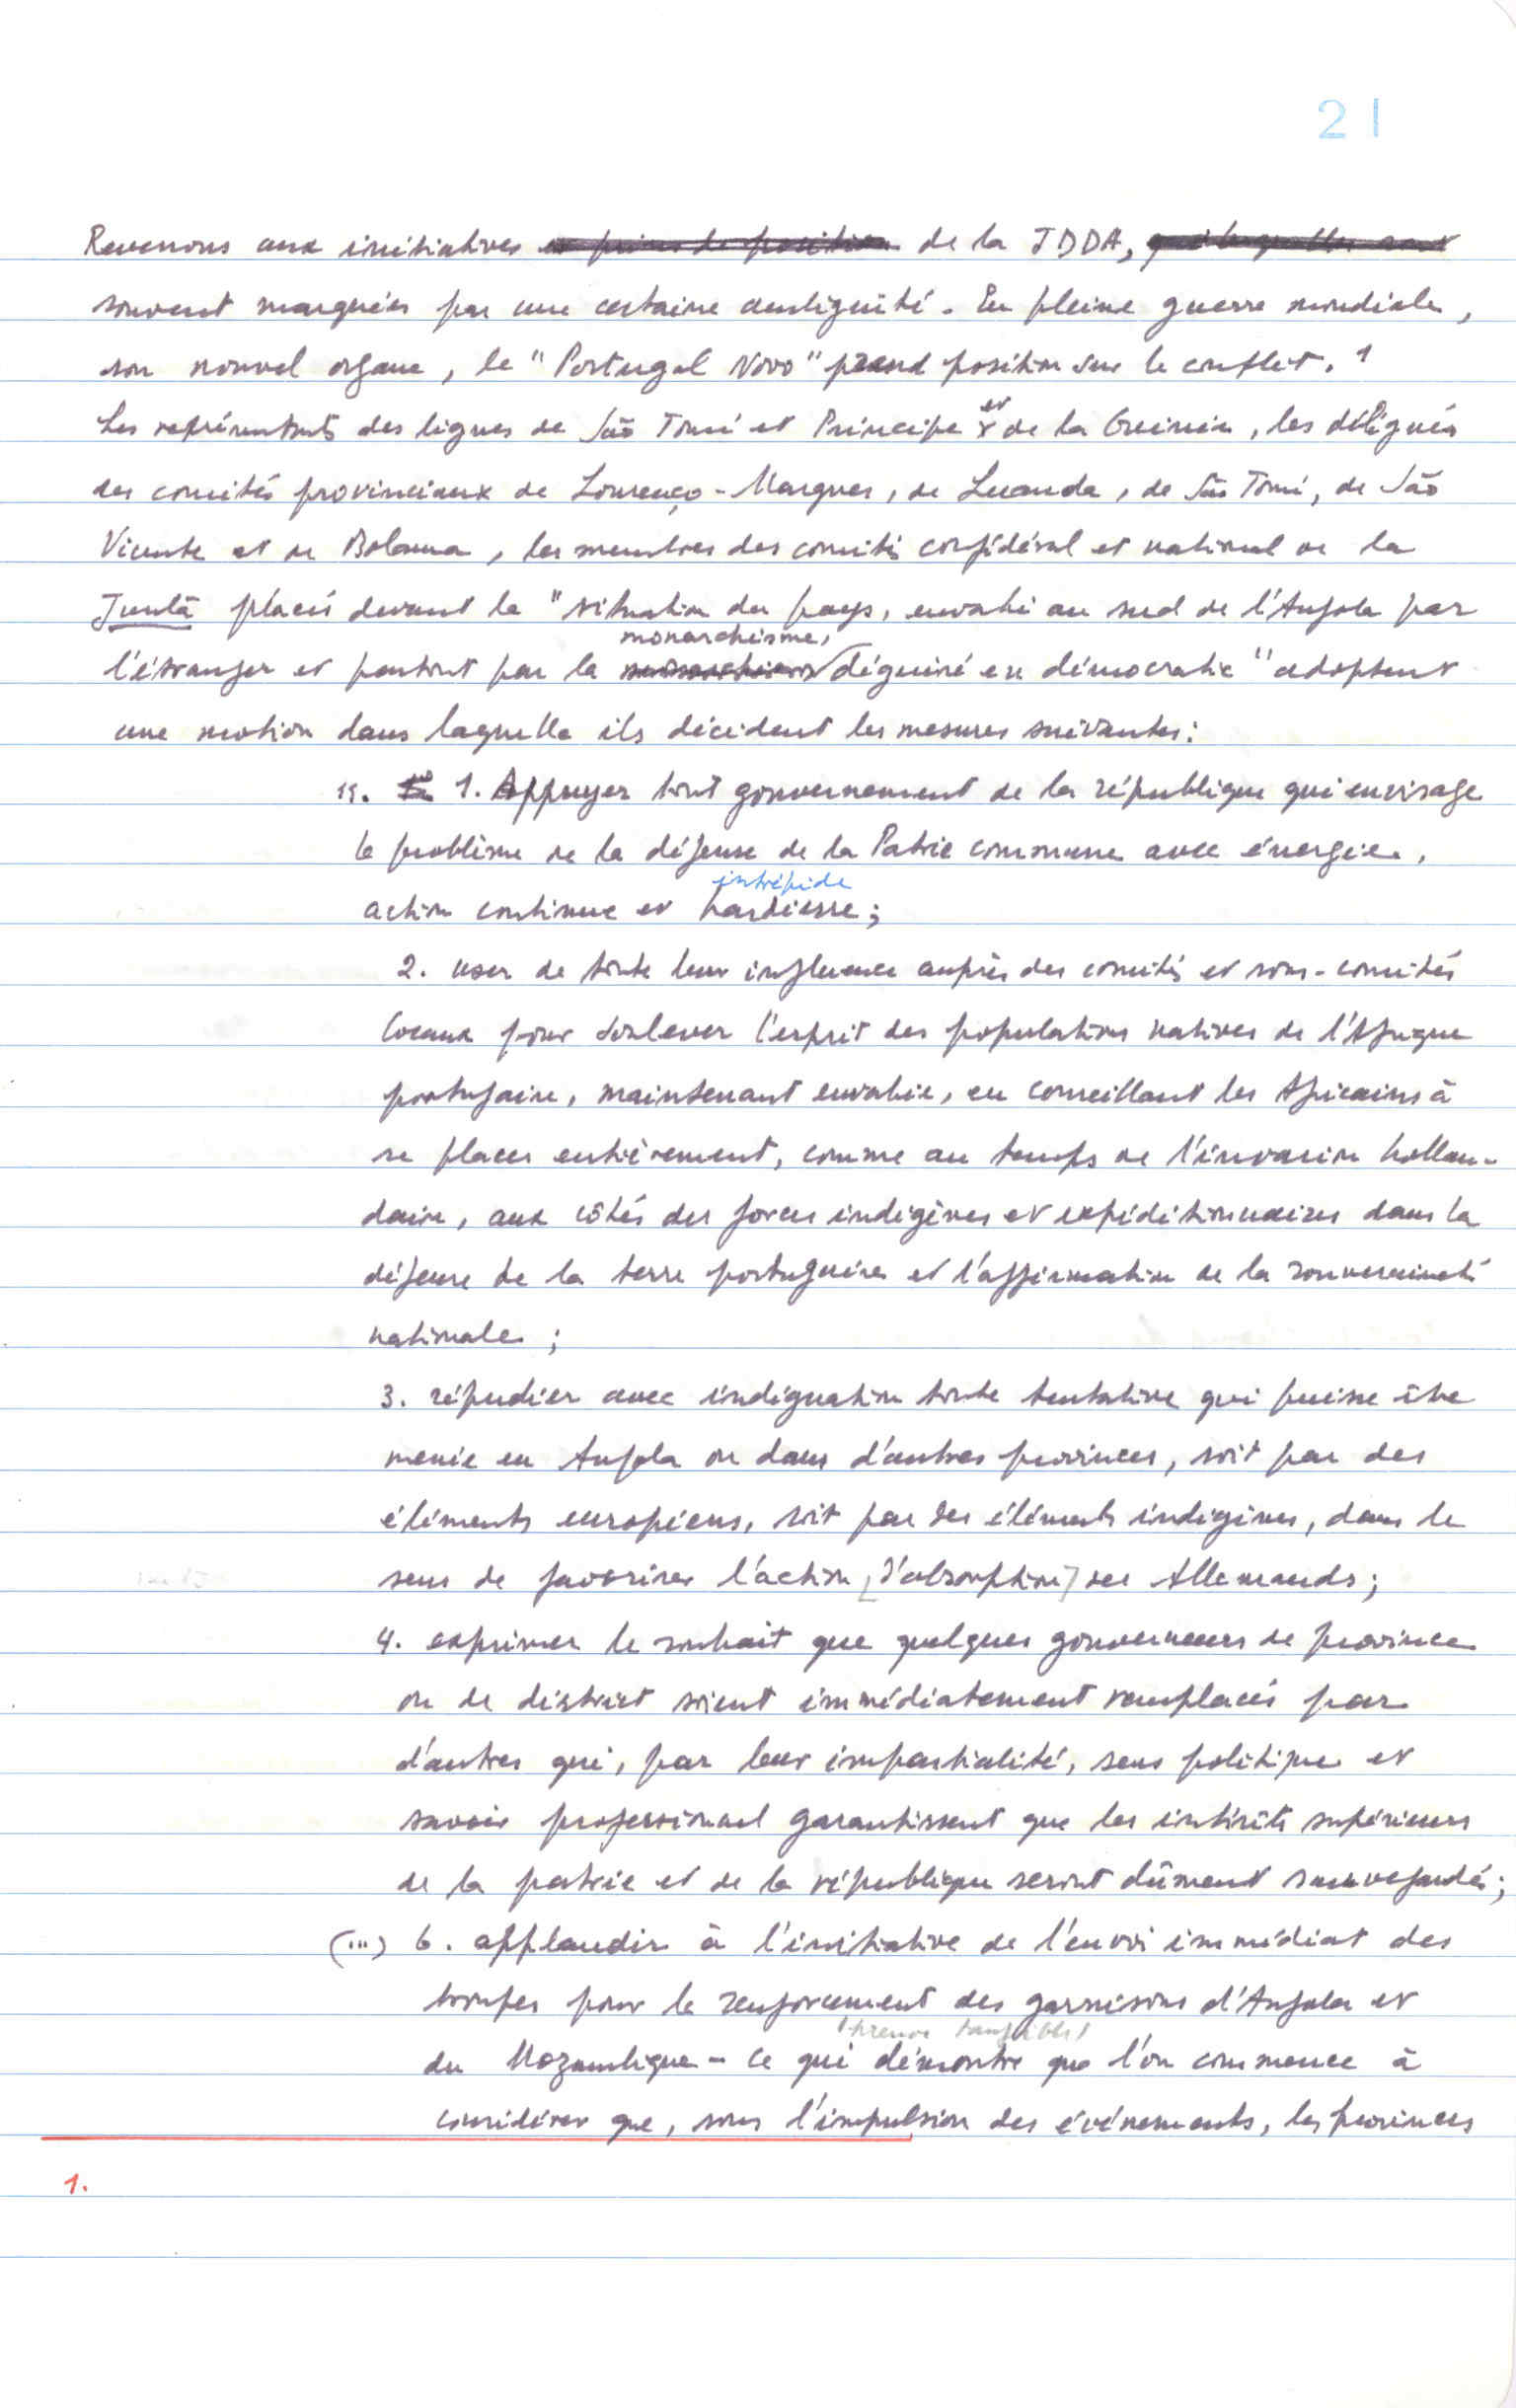 21
Revenons aux initiatives et prises de position de la JDDA,
souvent marquées par une certaine ambiguïté. En pleine guerre mondiale,
son nouvel organe, le "Portugal Novo" prend position sur le conflit. 1
Les représentants des ligues de São Tomé et Principe et de la Guinée, les délégués
des comités provinciaux de Lourenço-Marques, de Luanda, de São Tomé, de São
Vicente et de Bolama, les membres des comités confédéral et national de la
Junta placés devant la "situation du pays, envahi au sud de l'Angola par
monarchisme,
l'étranger et partout par la déguisé en démocratie" adoptent
une motion dans laquelle ils décident les mesures suivantes:
1. Appuyer tout gouvernement de la république qui envisage
le problème de la défense de la Patrie commune avec énergie,
intrépide
action continue et hardiesse;
2. user de toute leur influence auprès des comités et sous-comités
locaux pour soulever l'esprit des populations natives de l'Afrique
portugaise, maintenant envahie, en conseillant les Africains à
se placer entièrement, comme au temps de l'invasion hollan-
daise, aux côtés des forces indigènes et expéditionnaires dans la
défense de la terre portugaise et l'affirmation de la souveraineté
nationale;
3. répudier avec indignation toute tentative qui puisse être
menée en Angola ou dans d'autres provinces, soit par des
éléments européens, soit par des éléments indigènes, dans le
sens de favoriser l'action [d'absorption] des Allemands;
4. exprimer le souhait que quelques gouverneurs de province
ou de district soient immédiatement remplacés par
d'autres qui, par leur impartialité, sens politique et
savoir professionnel garantissent que les intérêts supérieurs
de la patrie et de la république seront dûment sauvegardés;
(...) 6. applaudir à l'initiative de l'envoi immédiat des
troupes pour le renforcement des garnisons d'Angola et
(preuve tangible)
du Mozambique - ce qui démontre que l'on commence à
considérer que, sous l'impulsion des événements, les provinces
1.